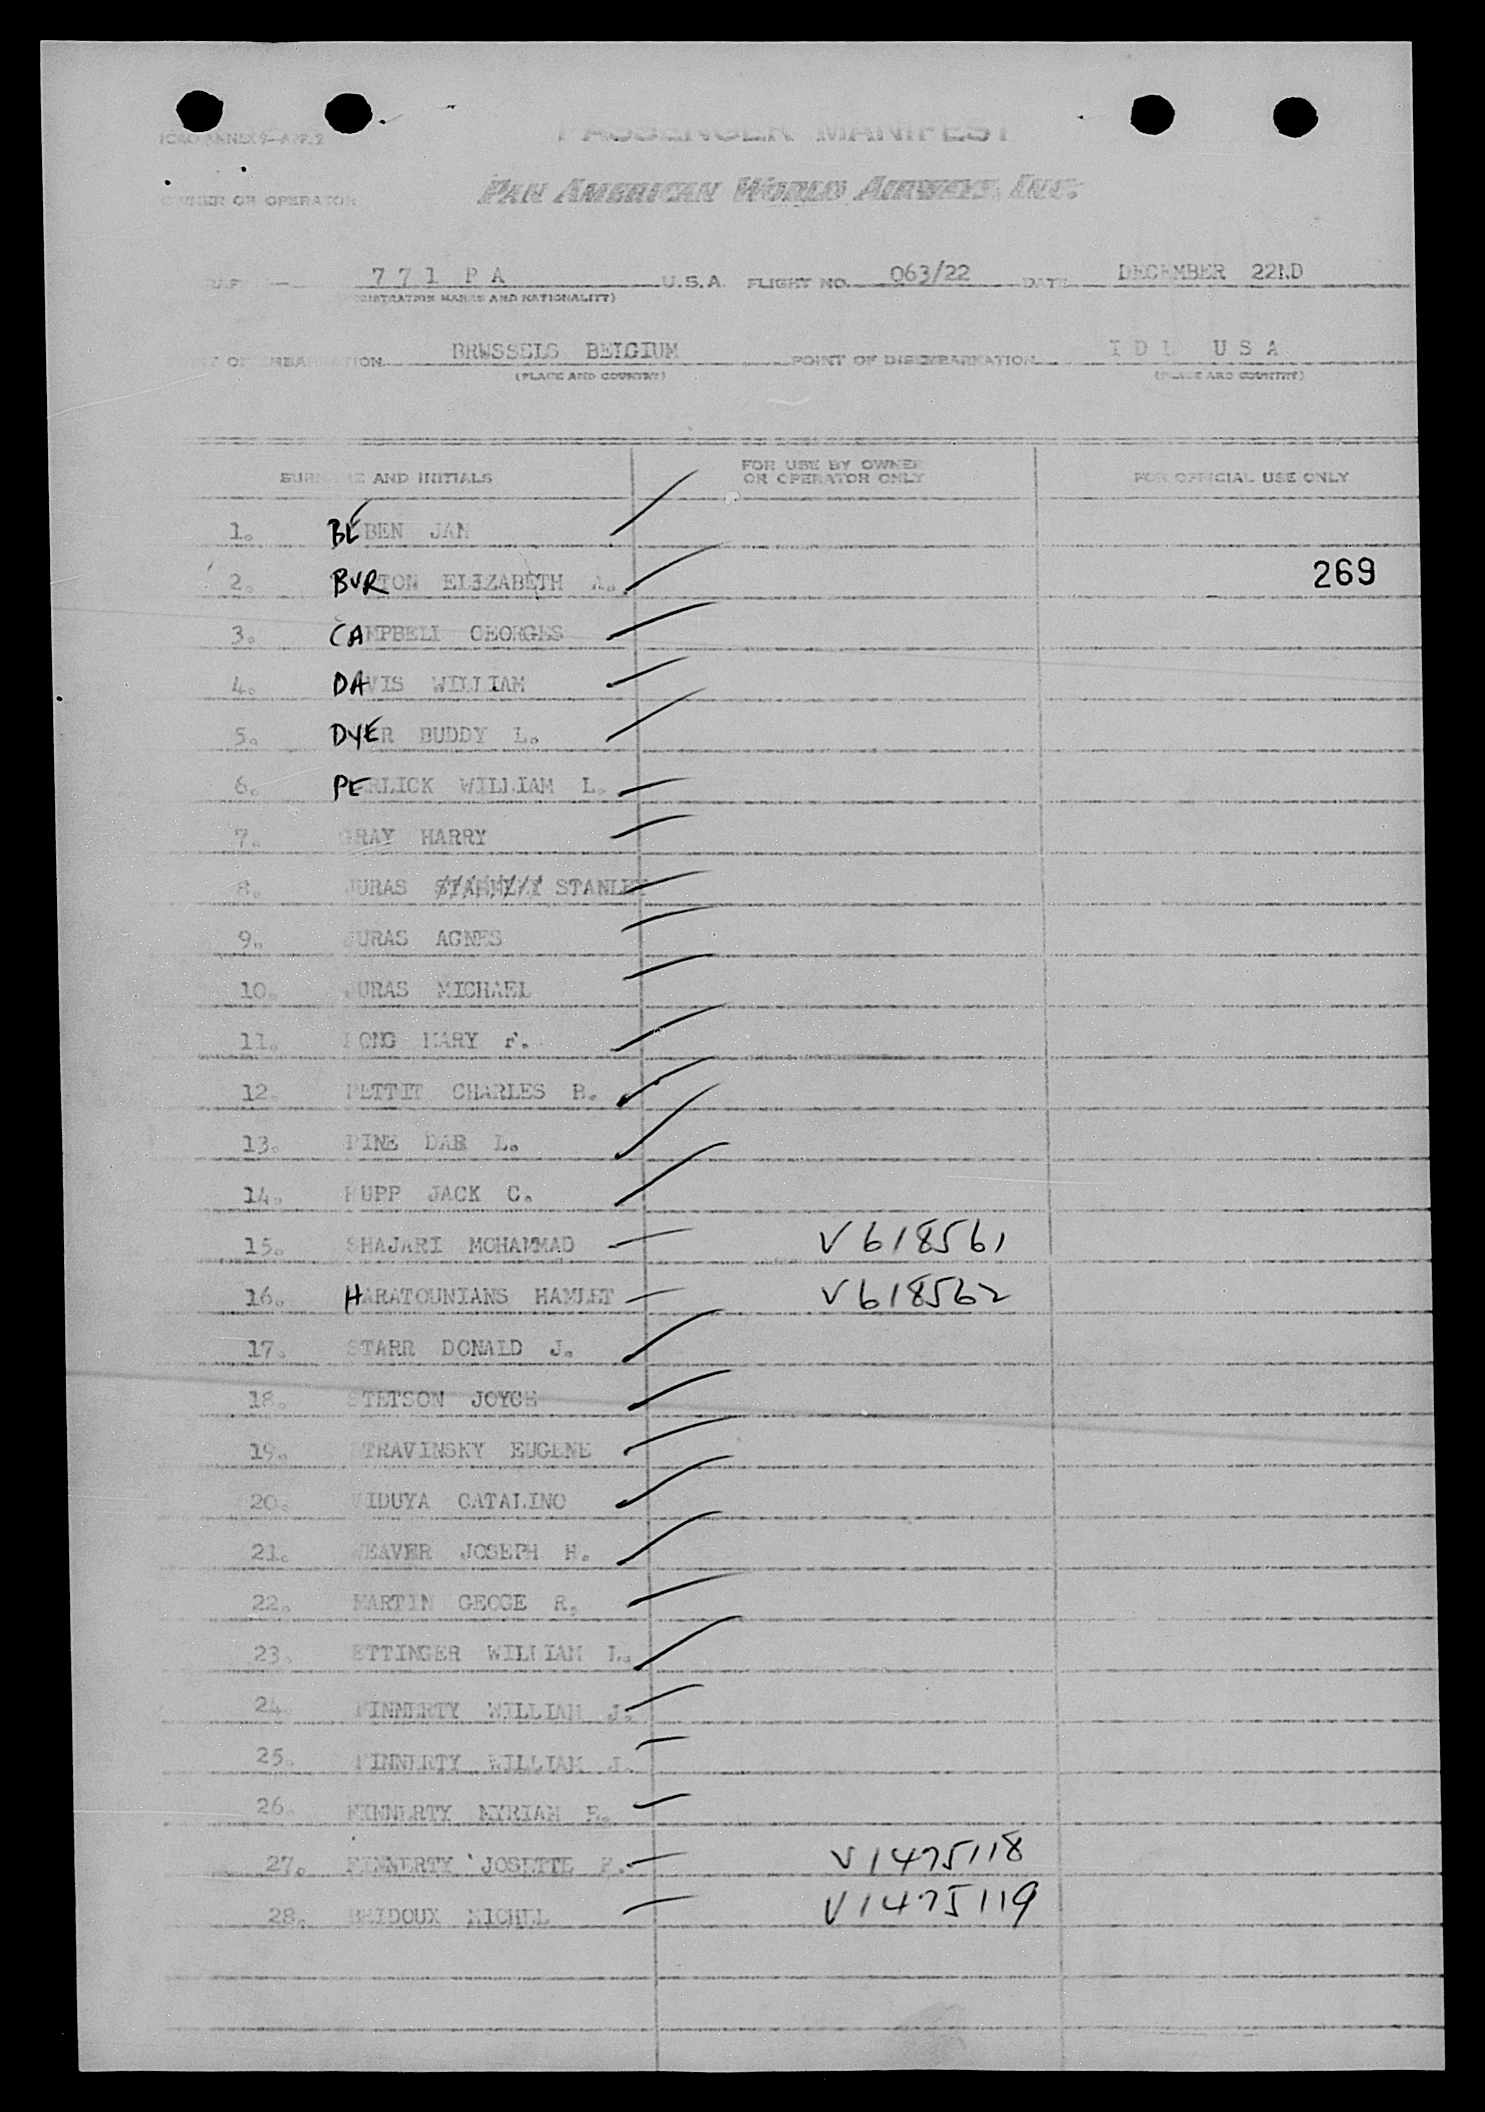 ICAO ANNEX 9—APP. 2
PASSENGER MANIFEST
OWNER OR OPERATOR PAN AMERICAN WORLD AIRWAYS, INC.
7 7 1 P A U.S.A. FLIGHT NO. 063/22 DATE DECEMBER 22ND
(REGISTRATION MARKS AND NATIONALITY)
POINT OF EMBARKATION BRWSSELS BELGIUM POINT OF DISEMBARKATION I D L U S A
(PLACE AND COUNTRY) (PLACE AND COUNTRY)
SURNAME AND INITIALS FOR USE BY OWNER OR OPERATOR ONLY FOR OFFICIAL USE ONLY
1. BEBEN JAN
2. BURTON ELIZABETH A. 269
3. CAMPBELL GEORGES
4. DAVIS WILLIAM
5. DYER BUDDY L.
6. PERLICK WILLIAM L.
7. GRAY HARRY
8. JURAS STANLEY
9. JURAS AGNES
10. JURAS MICHAEL
11. LONG MARY F.
12. PETTIT CHARLES B.
13. PINE DAR L.
14. RUPP JACK C.
15. SHAJARI MOHAMMAD V618561
16. HARATOUNIANS HAMLET V618562
17. STARR DONALD J.
18. STETSON JOYCE
19. STRAVINSKY EUGENE
20. VIDUYA CATALINO
21. WEAVER JOSEPH H.
22. MARTIN GEOGE R.
23. ETTINGER WILLIAM L.
24. FINNERTY WILLIAM J.
25. FINNERTY WILLIAM J.
26. FINNERTY MYRIAM
27. FINNERTY JOSETTE F. V1475118
28. BRIDOUX MICHEL V1475119